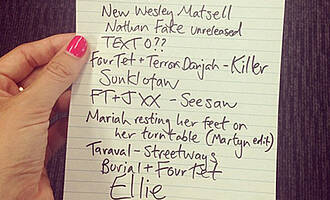 New Wesley Matsell
Nathan Fake unreleased
TEXT0??
FourTet + Terror Danjah - Killer
Sunklofaw
FT + JXX - Seesaw
Mariah resting her feet on
her turntable (Martyn edit)
Taraval - Streetways
Burial + Four Tet
Ellie